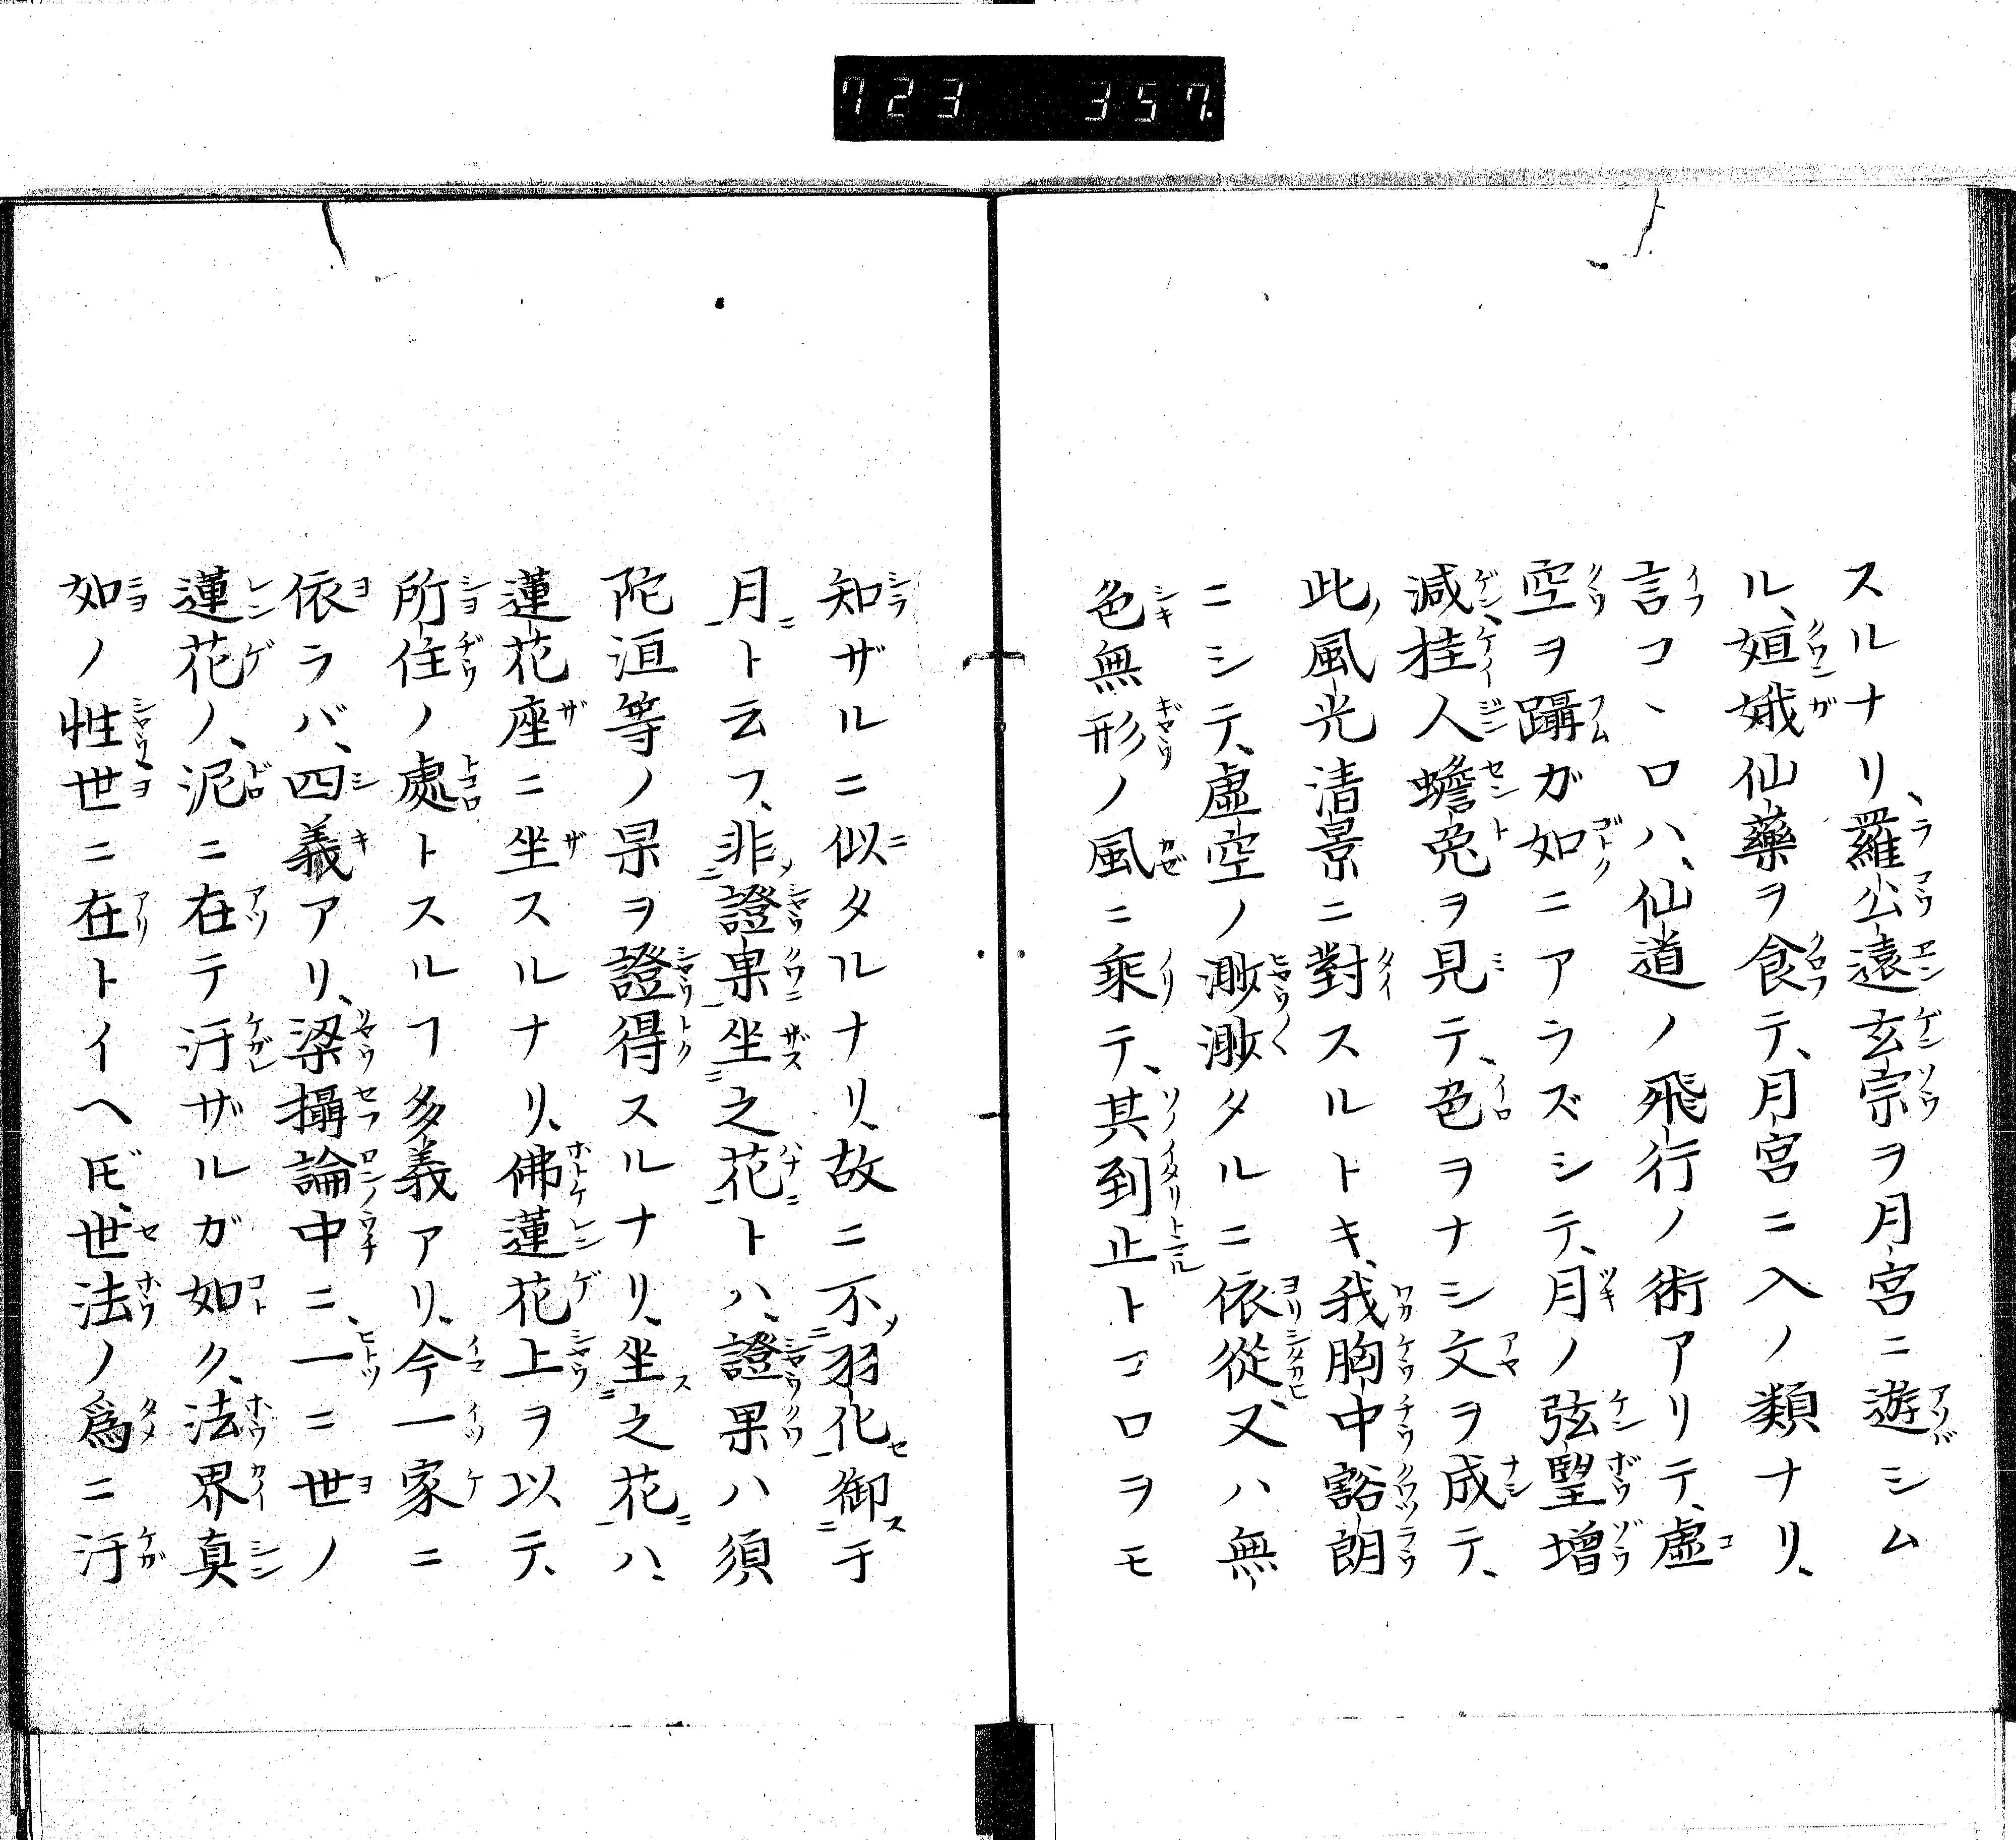 723 357.
スルナリ、羅公遠玄宗ヲ月宮ニ遊シム
ル、姮娥仙藥ヲ食テ、月宮ニ入ノ類ナリ、
言コヽロハ、仙道ノ飛行ノ術アリテ、虚
空ヲ躡ガ如ニアラズシテ、月ノ弦望増
減、桂人蟾兎ヲ見テ、色ヲナシ文ヲ成テ、
此風光清景ニ對スルトキ、我胸中豁朗
ニシテ、虚空ノ渺渺タルニ依從、又ハ無
色無形ノ風ニ乘テ、其到止トコロヲモ
知ザルニ似タルナリ、故ニ不羽化御于
月ト云フ、非證果坐之花トハ、證果ハ須
陀洹等ノ果ヲ證得スルナリ、坐之花ハ、
蓮花座ニ坐スルナリ、佛蓮花上ヲ以テ、
所住ノ處トスルヿ多義アリ、今一家ニ
依ラバ、四義アリ、梁攝論中ニ、一ニ世ノ
蓮花ノ、泥ニ在テ汙ザルガ如ク、法界真
如ノ性世ニ在トイヘ𪜈、世法ノ爲ニ汙